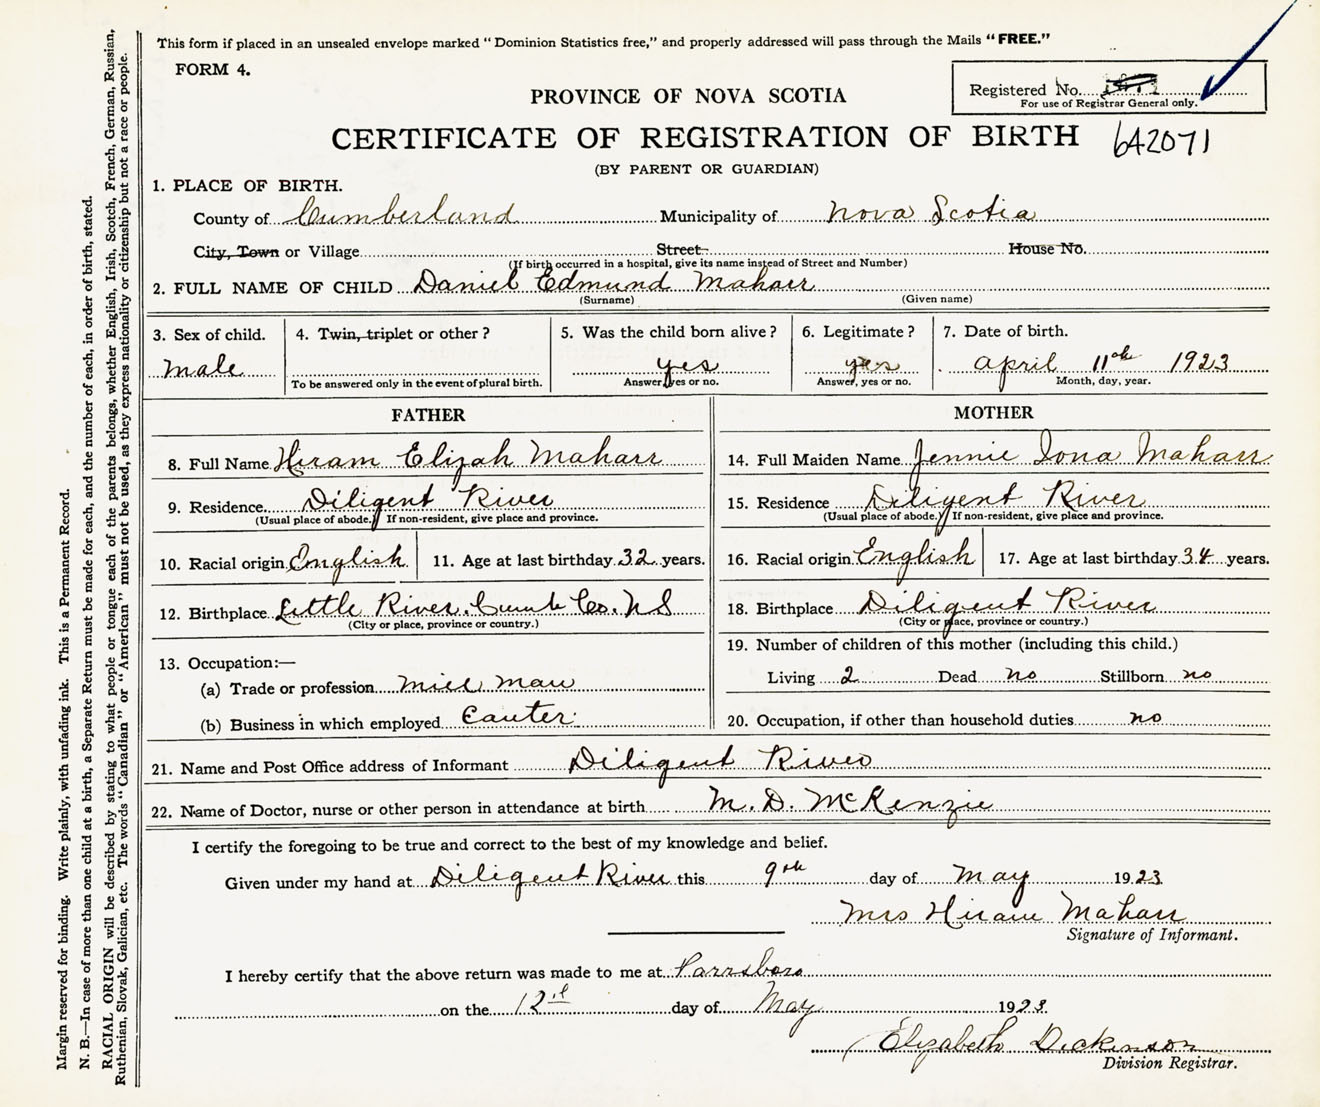 This form if placed in an unsealed envelope marked "Dominion Statistics free," and properly addressed will pass through the Mails "FREE."
FORM 4.
Registered No.
For use of Registrar General only.
PROVINCE OF NOVA SCOTIA
CERTIFICATE OF REGISTRATION OF BIRTH 642071
(BY PARENT OR GUARDIAN)
1. PLACE OF BIRTH.
County of Cumberland Municipality of Nova Scotia
City, Town or Village Street House No.
(If birth occurred in a hospital, give its name instead of Street and Number)
2. FULL NAME OF CHILD Daniel Edmund Maharr
(Surname) (Given name)
3. Sex of child. 4. Twin, triplet or other? 5. Was the child born alive? 6. Legitimate? 7. Date of birth.
male yes yes April 11th 1923
To be answered only in the event of plural birth. Answer, yes or no. Answer, yes or no. Month, day, year.
FATHER MOTHER
8. Full Name Hiram Elijah Maharr 14. Full Maiden Name Jennie Iona Maharr
9. Residence Diligent River 15. Residence Diligent River
(Usual place of abode.) If non-resident, give place and province. (Usual place of abode.) If non-resident, give place and province.
10. Racial origin English 11. Age at last birthday 32 years. 16. Racial origin English 17. Age at last birthday 34 years.
12. Birthplace Little River. Cumb Co. NS 18. Birthplace Diligent River
(City or place, province or country.) (City or place, province or country.)
19. Number of children of this mother (including this child.)
13. Occupation:—
(a) Trade or profession mill man Living 2 Dead no Stillborn no
(b) Business in which employed 20. Occupation, if other than household duties no
21. Name and Post Office address of Informant Diligent River
22. Name of Doctor, nurse or other person in attendance at birth M. D. McKenzie
I certify the foregoing to be true and correct to the best of my knowledge and belief.
Given under my hand at Diligent River this 9th day of May 1923
Mrs Hiram Maharr
Signature of Informant.
I hereby certify that the above return was made to me at Parrsboro
on the 12th day of May 1923.
Elizabeth Dickinson
Division Registrar.
Margin reserved for binding. Write plainly, with unfading ink. This is a Permanent Record.
N. B.—In case of more than one child at a birth, a Separate Return must be made for each, and the number of each, in order of birth, stated.
RACIAL ORIGIN will be described by stating to what people or tongue each of the parents belongs, whether English, Irish, Scotch, French, German, Russian,
Ruthenian, Slovak, Galician, etc. The words "Canadian" or "American" must not be used, as they express nationality or citizenship but not a race or people.